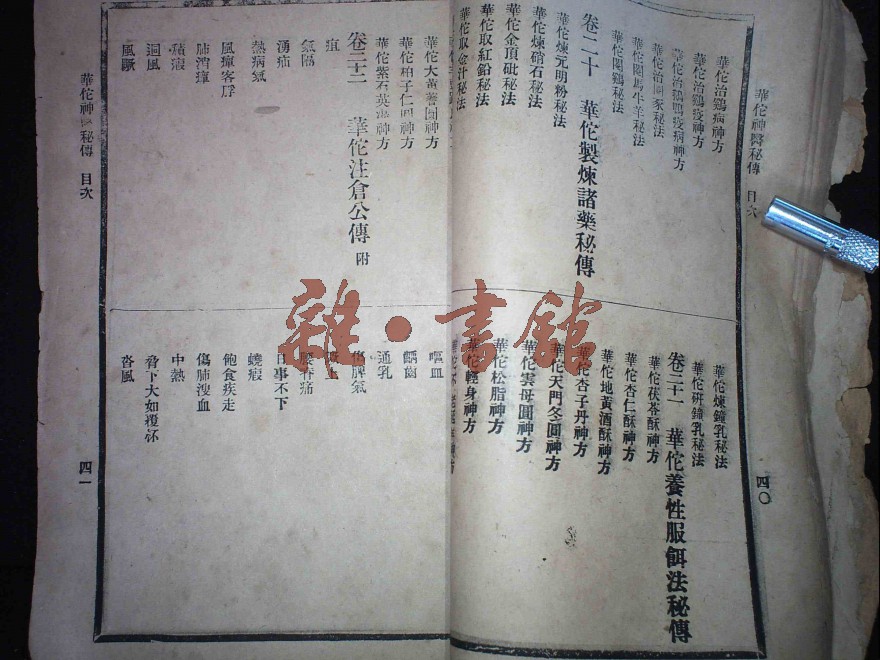 華佗神醫秘傳 目次
華佗治鷄病神方
華佗治鷄疫神方
華佗閹馬牛羊秘法
華佗閹鷄秘法
卷二十 華佗製煉諸藥秘傳
華佗煉元明粉秘法
華佗煉硝石秘法
華佗金頂砒秘法
華佗取紅鉛秘法
華佗取金汁秘法
華佗煉鐘乳秘法
華佗研鐘乳秘法
卷二十一 華佗養性服餌法秘傳
華佗茯苓酥神方
華佗杏仁酥神方
華佗地黃酒酥神方
華佗杏子丹神方
華佗天門冬圓神方
華佗雲母圓神方
華佗松脂神方
華佗輕身神方
四〇
華佗大黃耆圓神方
華佗柏子仁圓神方
華佗紫石英湯神方
卷二十二 華佗注倉公傳 附
疽
氣隔
湧疝
熱病氣
風癉客脬
肺消癉
積瘕
迵風
風蹶
嘔血
齲齒
通乳
傷脾氣
腰脊痛
月事不下
蟯瘕
飽食疾走
傷肺溲血
中熱
脅下大如覆杯
沓風
華佗神醫秘傳 目次
四一
雜·書館